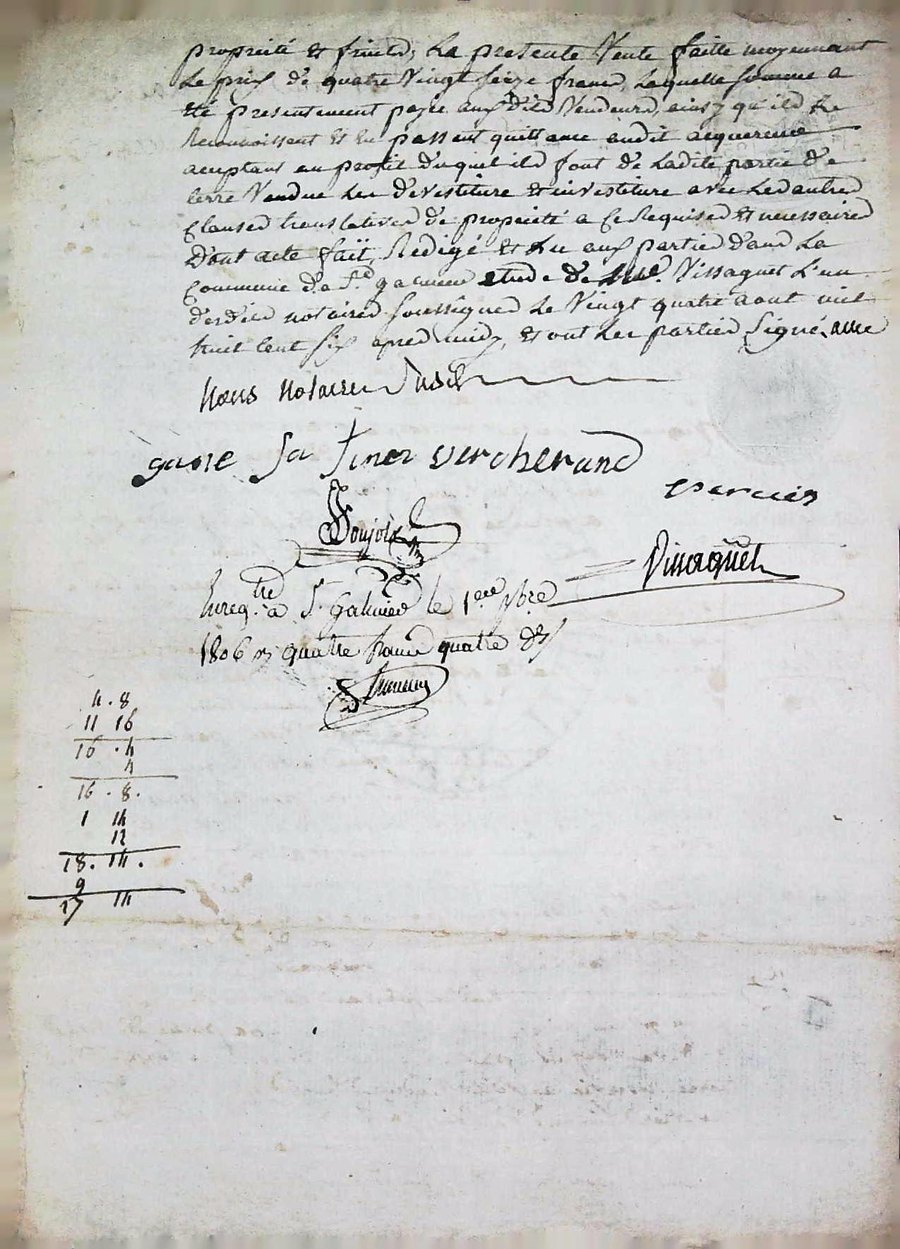 propriété et fruits; La presente Vente faitte moyennant
Le prix de quatre Vingt seize francs, Laquelle somme a
été presentement payée aux dits Vendeurs, ainsy qu'ils Le
Reconnoissent et en passent quittance audit acquereur
aceptant au profit duquel ils font de Ladite partie de
terre Vendue Les devestiture et investiture avec Les autres
Clauses translatives de propriété a Ce Requises et necessaires
Dont acte fait, Redigé et Lu aux parties dans La
Commune de St galmier etude de Me. Vissaguet L'un
desdits notaires soussignes Le Vingt quatre aout mil
huit Cent six apres midy, et ont Les parties Signé, avec
Nous notaires
vercherand
Soujol
Vissaguet
Enreg.tré à St. Galmier le 1.ere 7bre
1806 quatre francs quatre
4.8
11 16
16.4
4
16.8.
1 14
12
18.14.
9
17 14